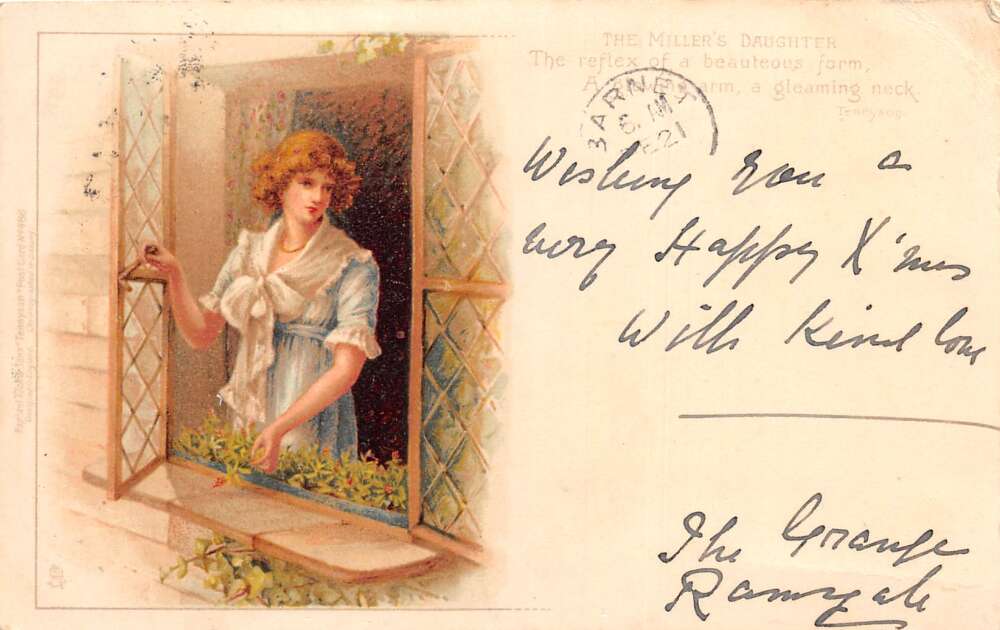 THE MILLER'S DAUGHTER
The reflex of a beauteous form,
A glowing arm, a gleaming neck.
Tennyson.
BARNET
Wishing you a
very Happy X'mas
With Kind love
The Grange
Ramsgate